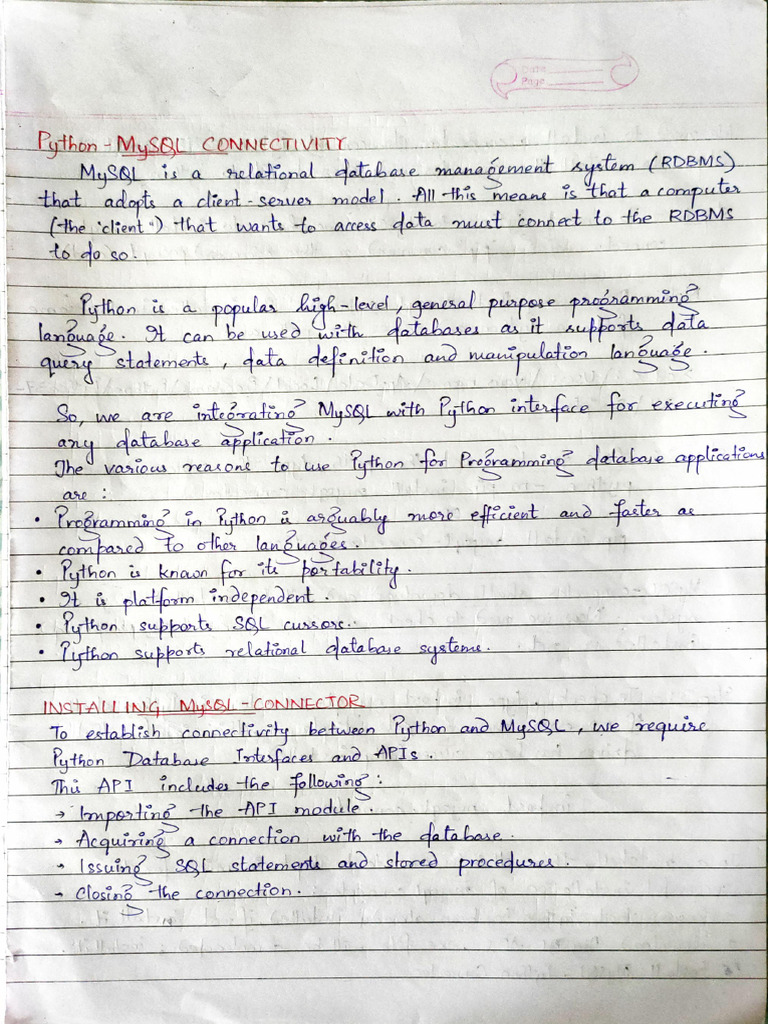 Date
Page
Python - MySQL CONNECTIVITY
MySQL is a relational database management system (RDBMS)
that adopts a client-server model. All this means is that a computer
(the "client") that wants to access data must connect to the RDBMS
to do so.
Python is a popular high-level, general purpose programming
language. It can be used with databases as it supports data
query statements, data definition and manipulation language.
So, we are integrating MySQL with Python interface for executing
any database application.
The various reasons to use Python for Programming database applications
are :
• Programming in Python is arguably more efficient and faster as
compared to other languages.
• Python is known for its portability.
• It is platform independent.
• Python supports SQL cursors.
• Python supports relational database systems.
INSTALLING MySQL - CONNECTOR
To establish connectivity between Python and MySQL, we require
Python Database Interfaces and APIs.
This API includes the following :
→ Importing the API module.
→ Acquiring a connection with the database.
→ Issuing SQL statements and stored procedures.
→ Closing the connection.